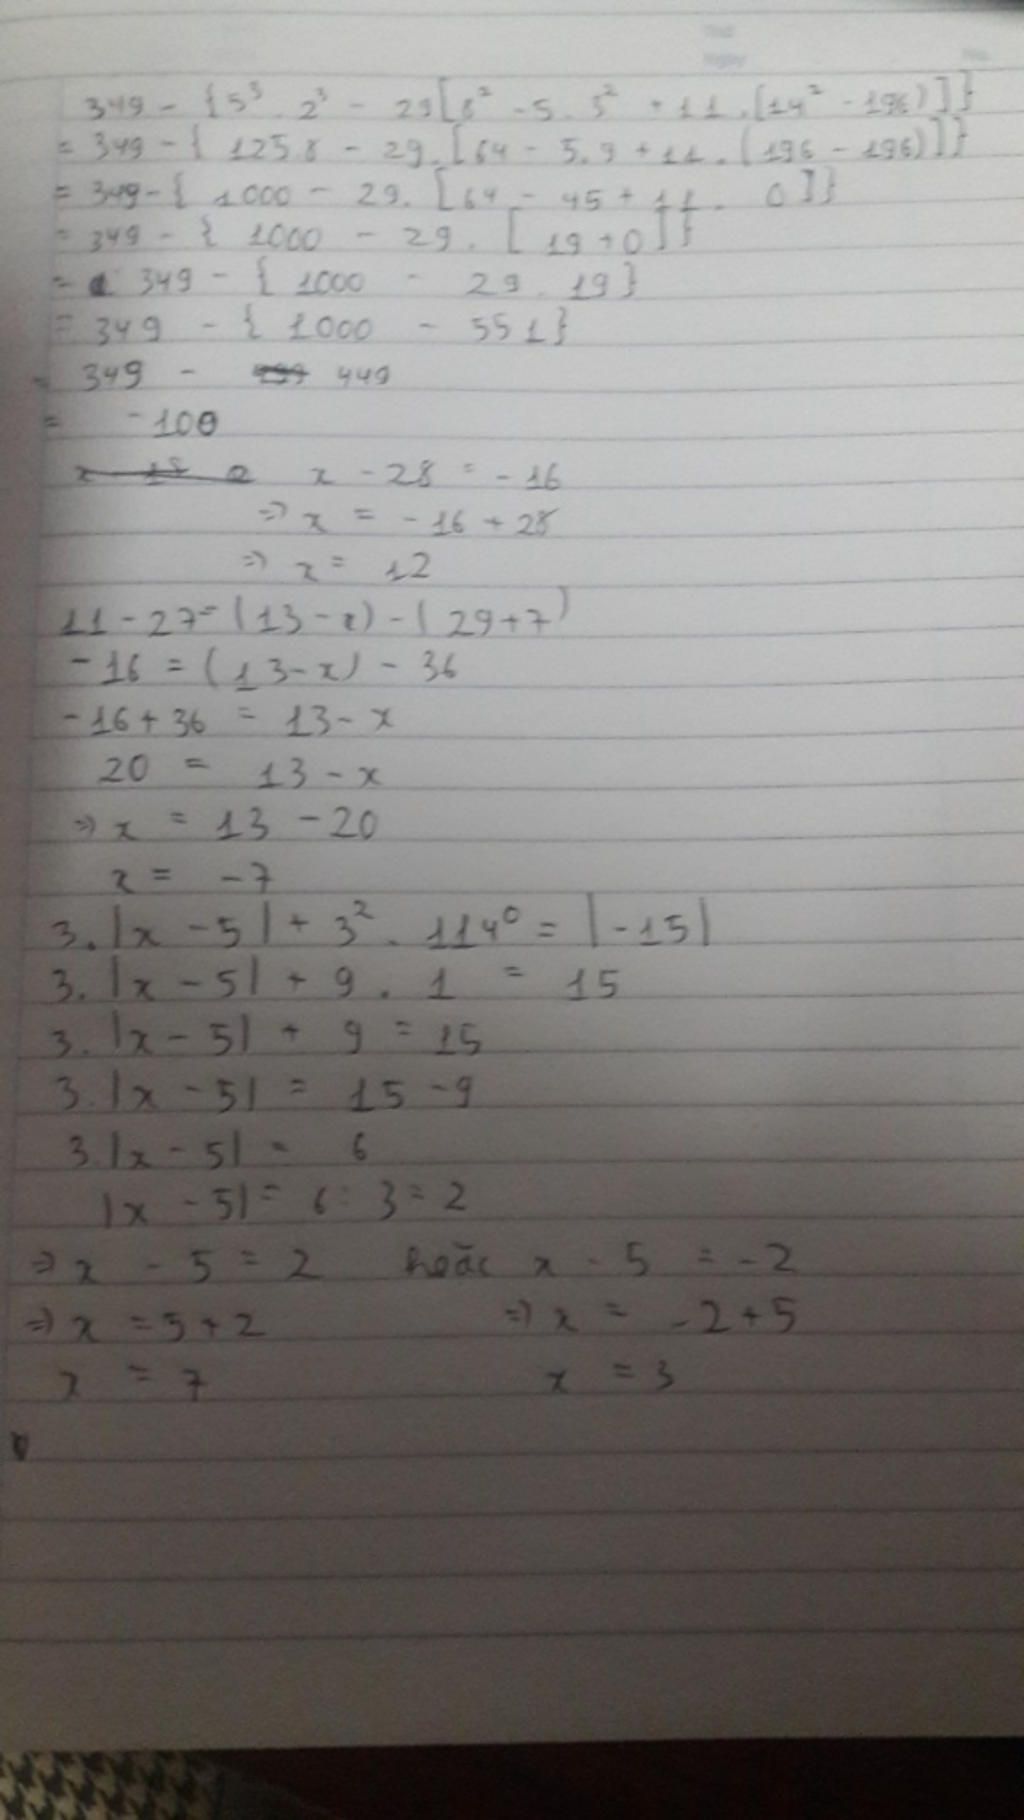 349 - {5³. 2³ - 29[8² - 5. 3² + 11. (14² - 196)]}
= 349 - { 125.8 - 29. [64 - 5.9 + 11. (196 - 196)]}
= 349 - { 1000 - 29. [64 - 45 + 11. 0]}
= 349 - { 1000 - 29. [ 19 + 0]}
= 349 - { 1000 - 29. 19}
= 349 - { 1000 - 551}
= 349 - 449
= -100
x - 28 = -16
=> x = -16 + 28
=> x = 12
11 - 27 = (13 - x) - ( 29 + 7)
-16 = (13 - x) - 36
-16 + 36 = 13 - x
20 = 13 - x
=> x = 13 - 20
x = -7
3. |x - 5| + 3². 114⁰ = |-15|
3. |x - 5| + 9. 1 = 15
3. |x - 5| + 9 = 15
3. |x - 5| = 15 - 9
3. |x - 5| = 6
|x - 5| = 6 : 3 = 2
=> x - 5 = 2 hoặc x - 5 = -2
=> x = 5 + 2 => x = -2 + 5
x = 7 x = 3